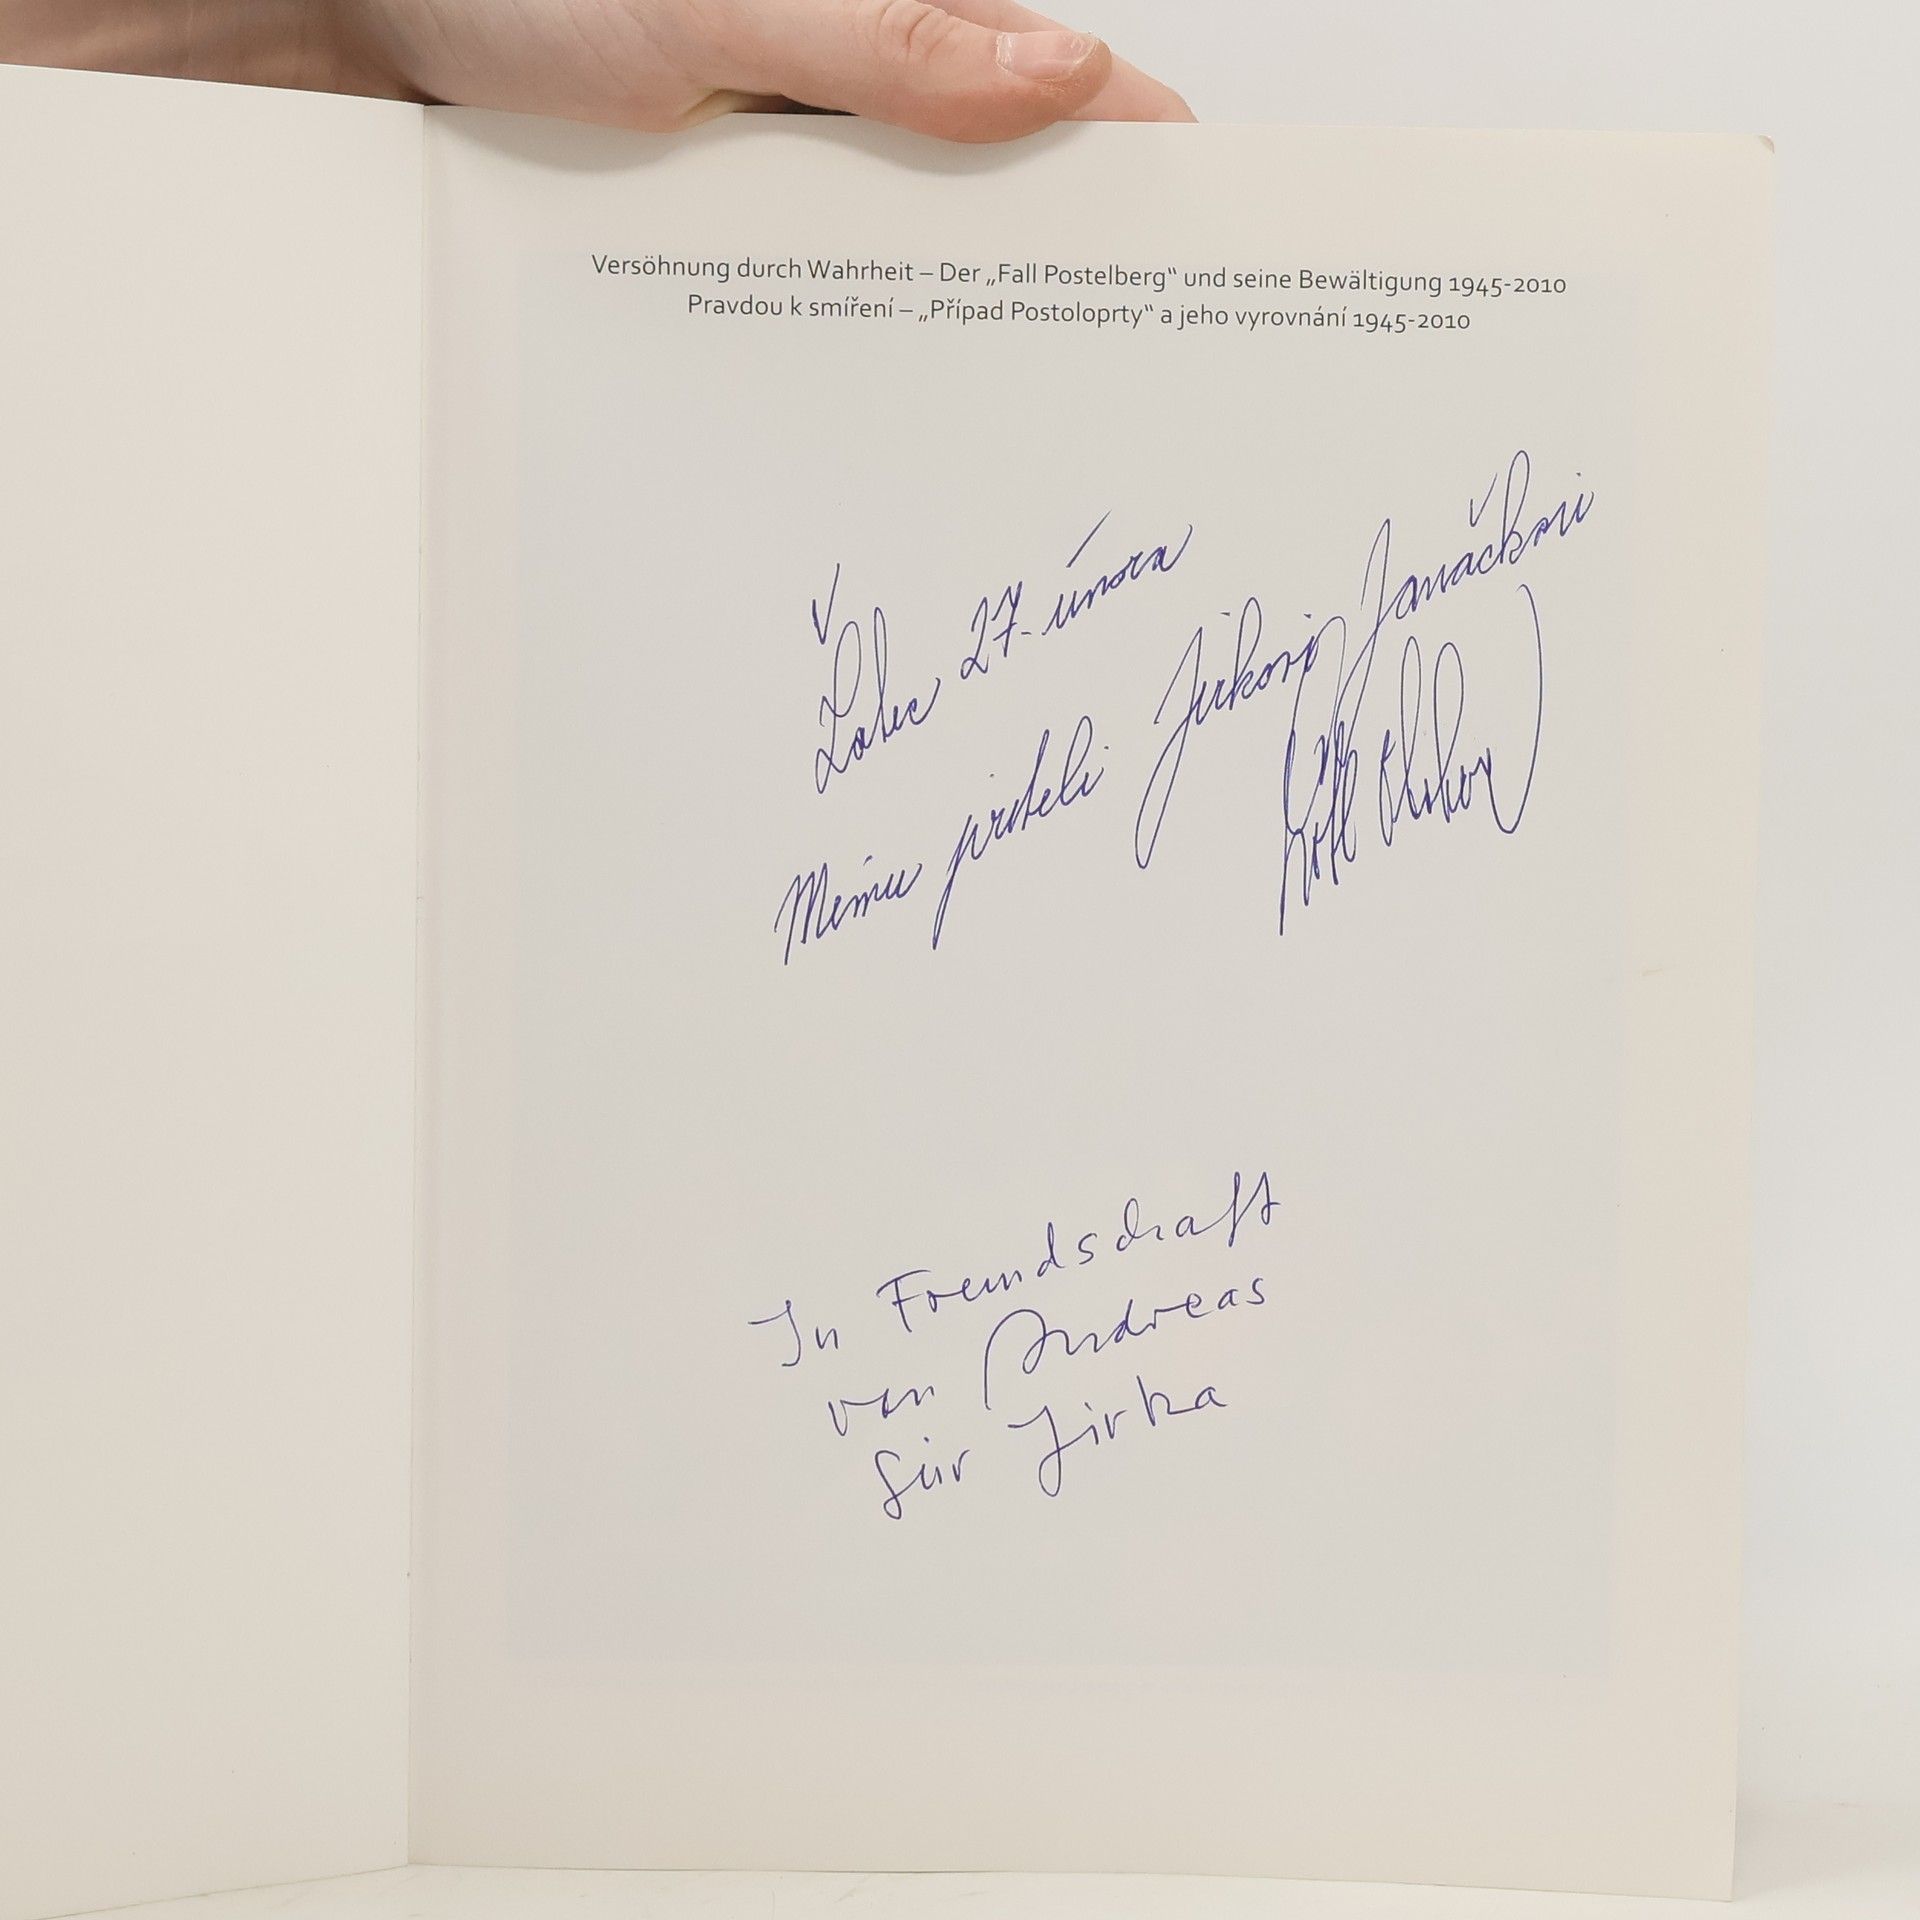 Versöhnung durch Wahrheit – Der „Fall Postelberg“ und seine Bewältigung 1945-2010
Pravdou k smíření – „Případ Postoloprty“ a jeho vyrovnání 1945-2010
Žatec 27. února
Mému príteli Jirkovi Janáčkovi
In Freundschaft
von Andreas
für Jirka